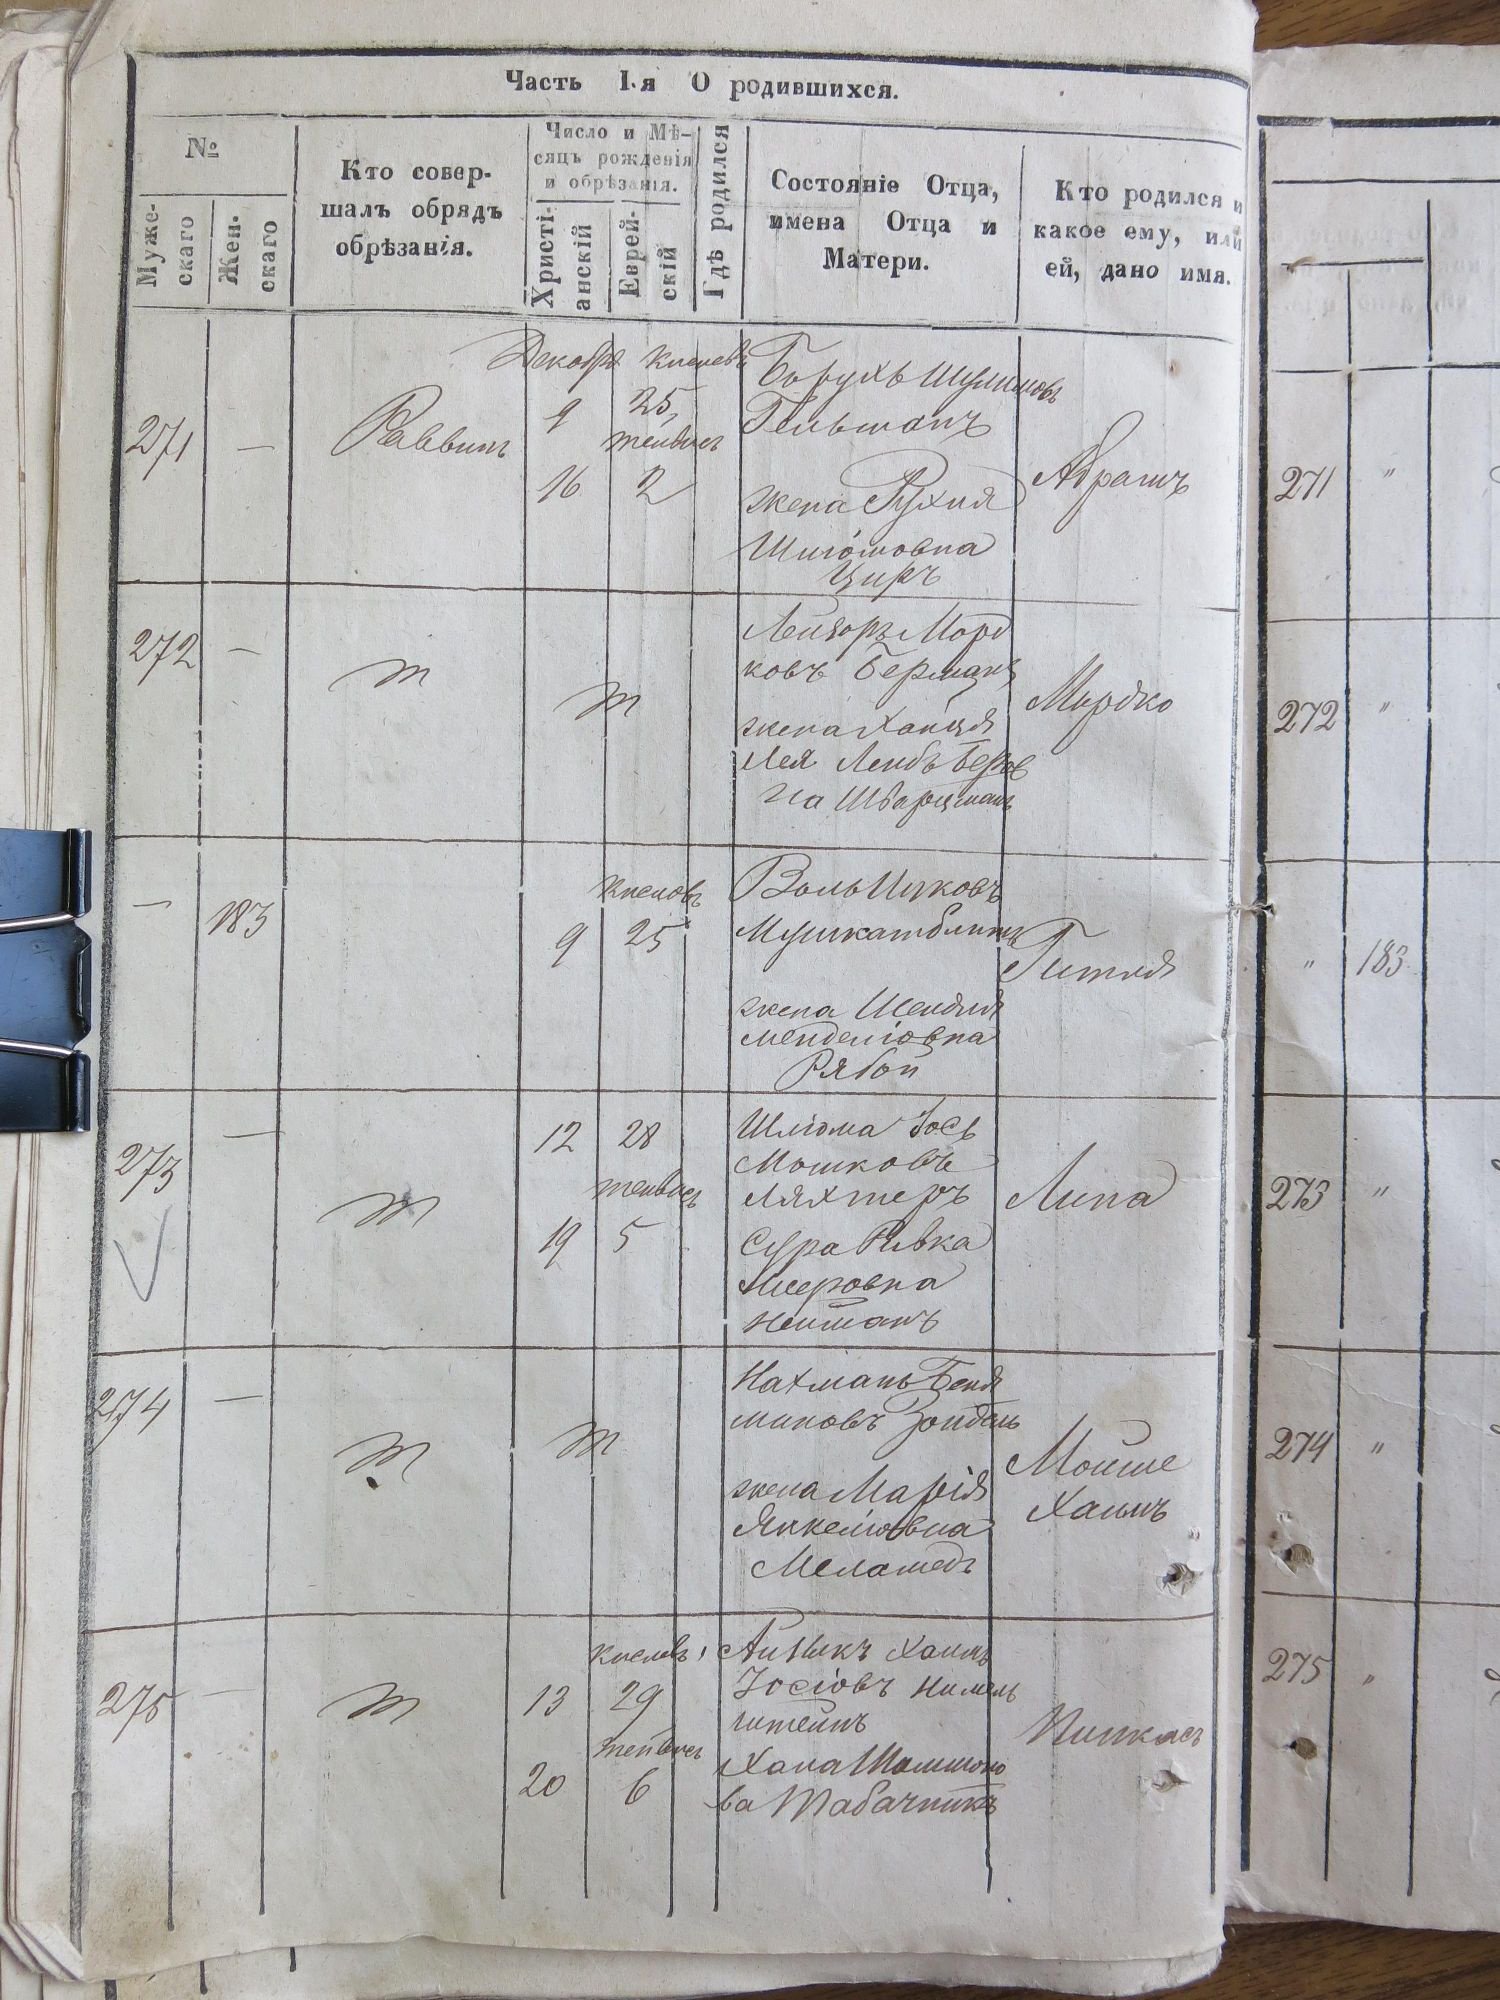 Часть I-я О родившихся.
№
Муже-
скаго
Жен-
скаго
Кто совер-
шалъ обрядъ
обрѣзанія.
Число и Мѣ-
сяцъ рожденія
и обрѣзанія.
Христі-
анскій
Еврей-
скій
Гдѣ родился
Состояніе Отца,
имена Отца и
Матери.
Кто родился и
какое ему, или
ей, дано имя.
271
—
Раввинъ
Декабря
9
16
Кислевъ
25
тейвисъ
2
Борухъ Шулимовъ
Гельманъ
жена Рухля
Шлiомовна
Циръ
Абрамъ
272
—
т
т
Лейзоръ Морд
ковъ Берманъ
жена Хайця
Лея Лейбъ Беров
на Шварцманъ
Мордко
—
183
9
Кислевъ
25
Воль Ицковъ
Мушкатблитъ
жена Шейндля
Менделіовна
Рябой
Гитля
273
—
т
12
19
28
тейвисъ
5
Шліома Іось
Мошковъ
Ляхтеръ
Сура Ривка
Мееровна
Нейманъ
Липа
274
—
т
т
Нахманъ Беня
миновъ Зондель
жена Марія
Янкеліовна
Меламедъ
Мойше
Хаимъ
275
—
т
13
20
Кислевъ
29
тейвисъ
6
Хаимъ
Іосіовъ Нимель
штейнъ
Хана
ва Табачникъ
Пинкасъ
271 "
272 "
" 183
273 "
274 "
275 "